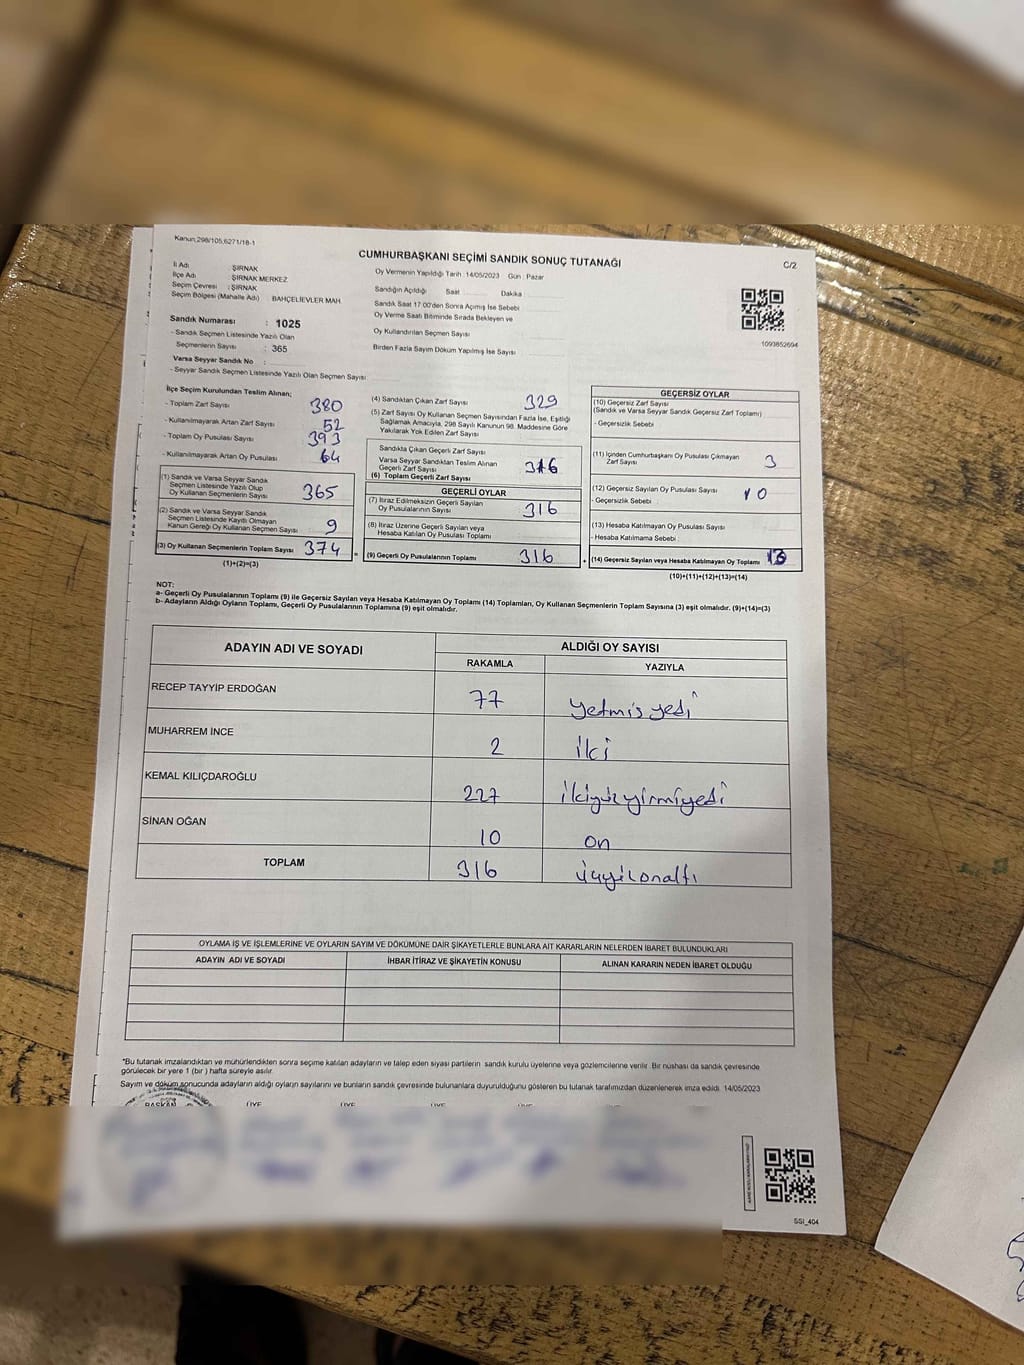 Kanun:298/105,6271/18-1
CUMHURBAŞKANI SEÇİMİ SANDIK SONUÇ TUTANAĞI
C/2
İl Adı : ŞIRNAK
İlçe Adı : ŞIRNAK MERKEZ
Seçim Çevresi : ŞIRNAK
Seçim Bölgesi (Mahalle Adı) : BAHÇELİEVLER MAH.
Sandık Numarası : 1025
- Sandık Seçmen Listesinde Yazılı Olan
Seçmenlerin Sayısı : 365
Varsa Seyyar Sandık No :
- Seyyar Sandık Seçmen Listesinde Yazılı Olan Seçmen Sayısı :
Oy Vermenin Yapıldığı Tarih : 14/05/2023 Gün : Pazar
Sandığın Açıldığı Saat Dakika :
Sandık Saat 17.00'den Sonra Açımış İse Sebebi
Oy Verme Saati Bitiminde Sırada Bekleyen ve
Oy Kullandırılan Seçmen Sayısı
Birden Fazla Sayım Döküm Yapılmış İse Sayısı
1093852694
İlçe Seçim Kurulundan Teslim Alınan;
- Toplam Zarf Sayısı 380
- Kullanılmayarak Artan Zarf Sayısı 52
- Toplam Oy Pusulası Sayısı 393
- Kullanılmayarak Artan Oy Pusulası 64
(1) Sandık ve Varsa Seyyar Sandık
Seçmen Listesinde Yazılı Olup
Oy Kullanan Seçmenlerin Sayısı 365
(2) Sandık ve Varsa Seyyar Sandık
Seçmen Listesinde Kayıtlı Olmayan
Kanun Gereği Oy Kullanan Seçmen Sayısı 9
(3) Oy Kullanan Seçmenlerin Toplam Sayısı 374
(1)+(2)=(3)
(4) Sandıktan Çıkan Zarf Sayısı 329
(5) Zarf Sayısı Oy Kullanan Seçmen Sayısından Fazla İse, Eşitliği
Sağlamak Amacıyla, 298 Sayılı Kanunun 98. Maddesine Göre
Yakılarak Yok Edilen Zarf Sayısı
Sandıkta Çıkan Geçerli Zarf Sayısı
Varsa Seyyar Sandıktan Teslim Alınan
Geçerli Zarf Sayısı
(6) Toplam Geçerli Zarf Sayısı 316
GEÇERLİ OYLAR
(7) İtiraz Edilmeksizin Geçerli Sayılan
Oy Pusulasının Sayısı 316
(8) İtiraz Üzerine Geçerli Sayılan veya
Hesaba Katılan Oy Pusulası Toplamı
(9) Geçerli Oy Pusulalarının Toplamı 316
GEÇERSİZ OYLAR
(10) Geçersiz Zarf Sayısı
(Sandık ve Varsa Seyyar Sandık Geçersiz Zarf Toplamı)
- Geçersizlik Sebebi
(11) İçinden Cumhurbaşkanı Oy Pusulası Çıkmayan
Zarf Sayısı 3
(12) Geçersiz Sayılan Oy Pusulası Sayısı 10
- Geçersizlik Sebebi :
(13) Hesaba Katılmayan Oy Pusulası Sayısı
- Hesaba Katılmama Sebebi :
(14) Geçersiz Sayılan veya Hesaba Katılmayan Oy Toplamı 13
(10)+(11)+(12)+(13)=(14)
NOT:
a- Geçerli Oy Pusulalarının Toplamı (9) ile Geçersiz Sayılan veya Hesaba Katılmayan Oy Toplamı (14) Toplamları, Oy Kullanan Seçmenlerin Toplam Sayısına (3) eşit olmalıdır. (9)+(14)=(3)
b- Adayların Aldığı Oyların Toplamı, Geçerli Oy Pusulalarının Toplamına (9) eşit olmalıdır.
ADAYIN ADI VE SOYADI ALDIĞI OY SAYISI
RAKAMLA YAZIYLA
RECEP TAYYİP ERDOĞAN 77 yetmiş yedi
MUHARREM İNCE 2 iki
KEMAL KILIÇDAROĞLU 227 ikiyüzyirmiyedi
SİNAN OĞAN 10 on
TOPLAM 316 üçyüzonaltı
OYLAMA İŞ VE İŞLEMLERİNE VE OYLARIN SAYIM VE DÖKÜMÜNE DAİR ŞİKAYETLERLE BUNLARA AİT KARARLARIN NELERDEN İBARET BULUNDUKLARI
ADAYIN ADI VE SOYADI İHBAR İTİRAZ VE ŞİKAYETİN KONUSU ALINAN KARARIN NEDEN İBARET OLDUĞU
*Bu tutanak imzalandıktan ve mühürlendikten sonra seçime katılan adayların ve talep eden siyasi partilerin sandık kurulu üyelerine veya gözlemcilerine verilir. Bir nüshası da sandık çevresinde
görülecek bir yere 1 (bir ) hafta süreyle asılır.
Sayım ve döküm sonucunda adayların aldığı oyların sayılarını ve bunların sandık çevresinde bulunanlara duyurulduğunu gösteren bu tutanak tarafımızdan düzenlenerek imza edildi. 14/05/2023
BAŞKAN ÜYE ÜYE ÜYE ÜYE ÜYE
SSI_404